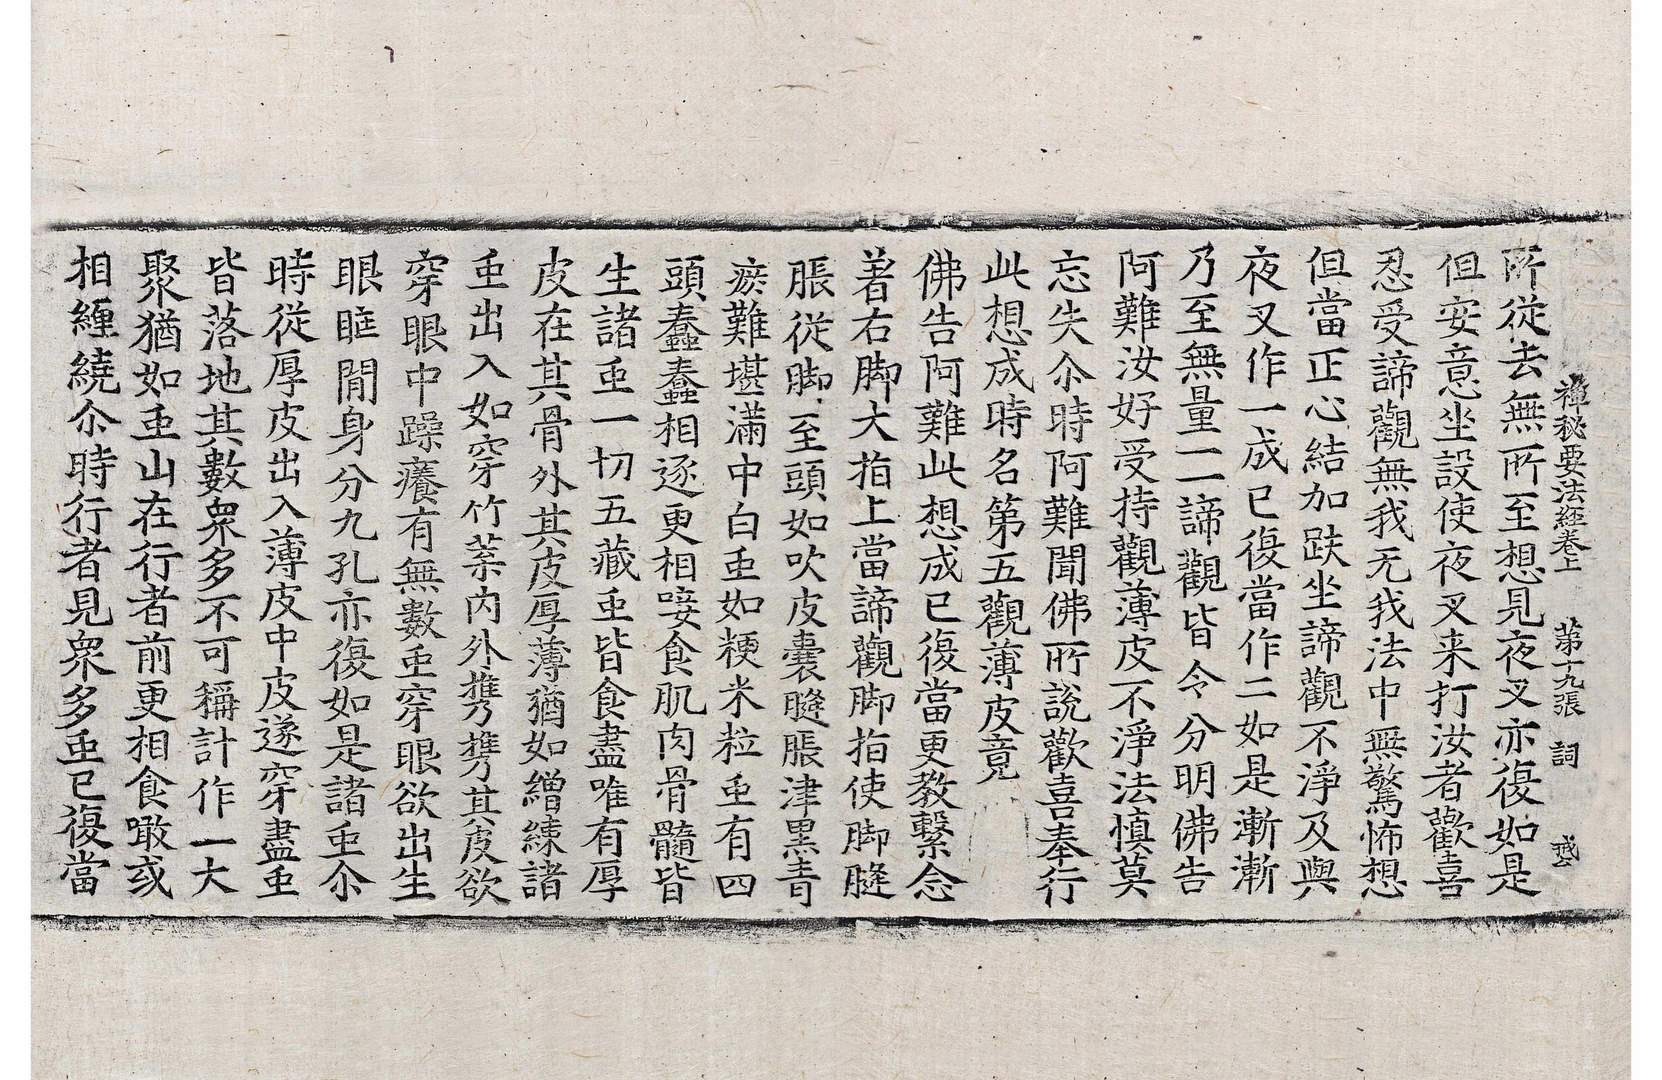 禪秘要法經卷上　第十九張　詞
所從去無所至想見夜叉亦復如是
但安意坐設使夜叉来打汝者歡喜
忍受諦觀無我无我法中無驚怖想
但當正心結加趺坐諦觀不淨及與
夜叉作一成已復當作二如是漸漸
乃至無量一一諦觀皆令分明佛告
阿難汝好受持觀薄皮不淨法慎莫
忘失尒時阿難聞佛所說歡喜奉行
此想成時名第五觀薄皮竟
佛告阿難此想成已復當更教繫念
著右脚大指上當諦觀脚指使脚膖
脹從脚至頭如吹皮囊膖脹津黑青
瘀難堪滿中白䖝如粳米粒䖝有四
頭蠢蠢相逐更相唼食肌肉骨髓皆
生諸䖝一切五藏䖝皆食盡唯有厚
皮在其骨外其皮厚薄猶如繒練諸
䖝出入如穿竹葉內外携携其皮欲
穿眼中躁癢有無數䖝穿眼欲出生
眼眶間身分九孔亦復如是諸䖝尒
時從厚皮出入薄皮中皮遂穿盡䖝
皆落地其數衆多不可稱計作一大
聚猶如䖝山在行者前更相食噉或
相纏繞尒時行者見衆多䖝已復當